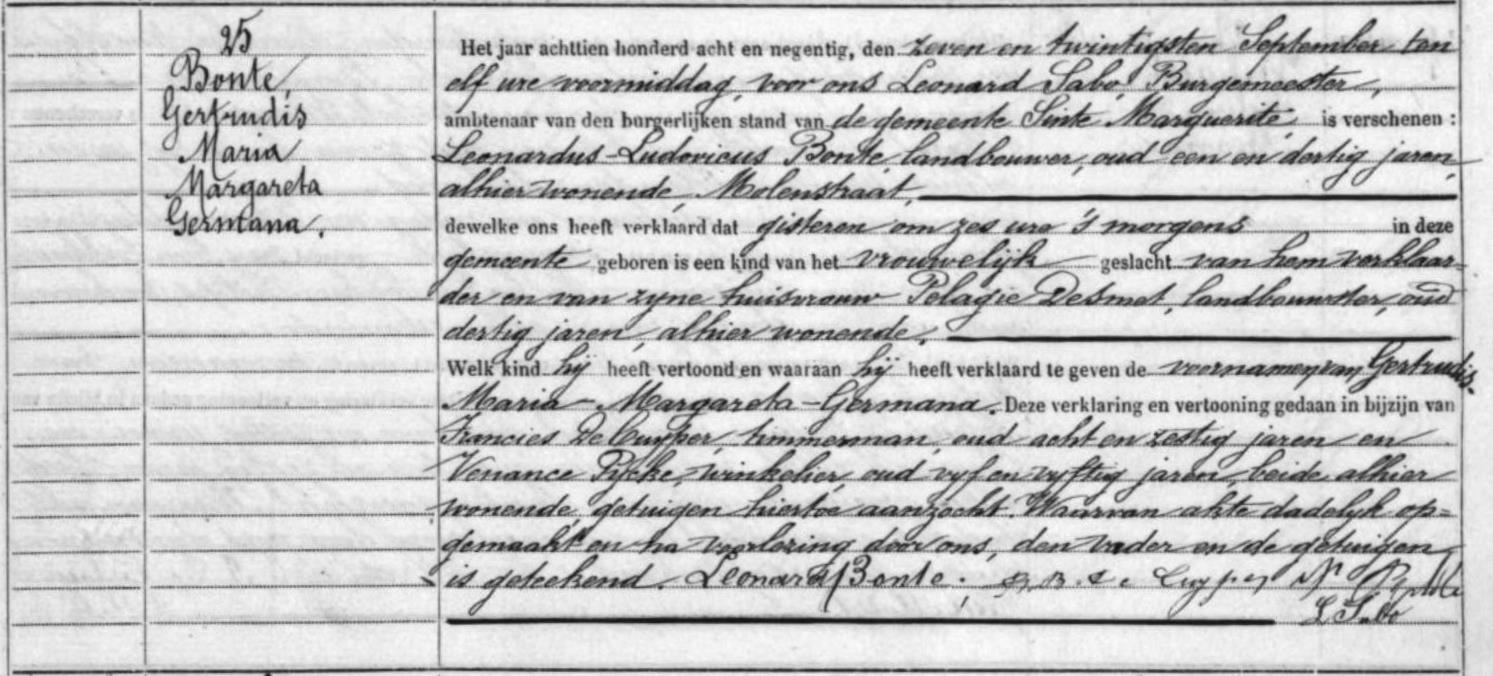 25
Bonte,
Gertrudis
Maria
Margareta
Germana.
Het jaar achttien honderd acht en negentig, den zeven en twintigsten September ten
elf ure voormiddag, voor ons Leonard Sabo, Burgemeester,
ambtenaar van den borgerlijken stand van de gemeente Sinte Marguerite, is verschenen :
Leonardus-Ludovicus Bonte, landbouwer, oud een en dertig jaren,
alhier wonende, Molenstraat,
dewelke ons heeft verklaard dat gisteren om zes ure 's morgens in deze
gemeente geboren is een kind van het vrouwelijk geslacht van hem verklaar-
der en van zyne huisvrouw Pelagie Desmet, landbouwster, oud
dertig jaren, alhier wonende.
Welk kind hij heeft vertoond en waaraan hij heeft verklaard te geven de voornamen van Gertrudis-
Maria-Margareta-Germana. Deze verklaring en vertooning gedaan in bijzijn van
Francies De Cuyper, timmerman, oud acht en zestig jaren en
Venance Pycke, winkelier, oud vyf en vyftig jaren, beide alhier
wonende getuigen hiertoe aanzocht. Waarvan akte dadelyk op=
gemaakt en na voorlezing door ons, den vader en de getuigen
is geteekend. Leonard Bonte. De Cuyper
L Sabo